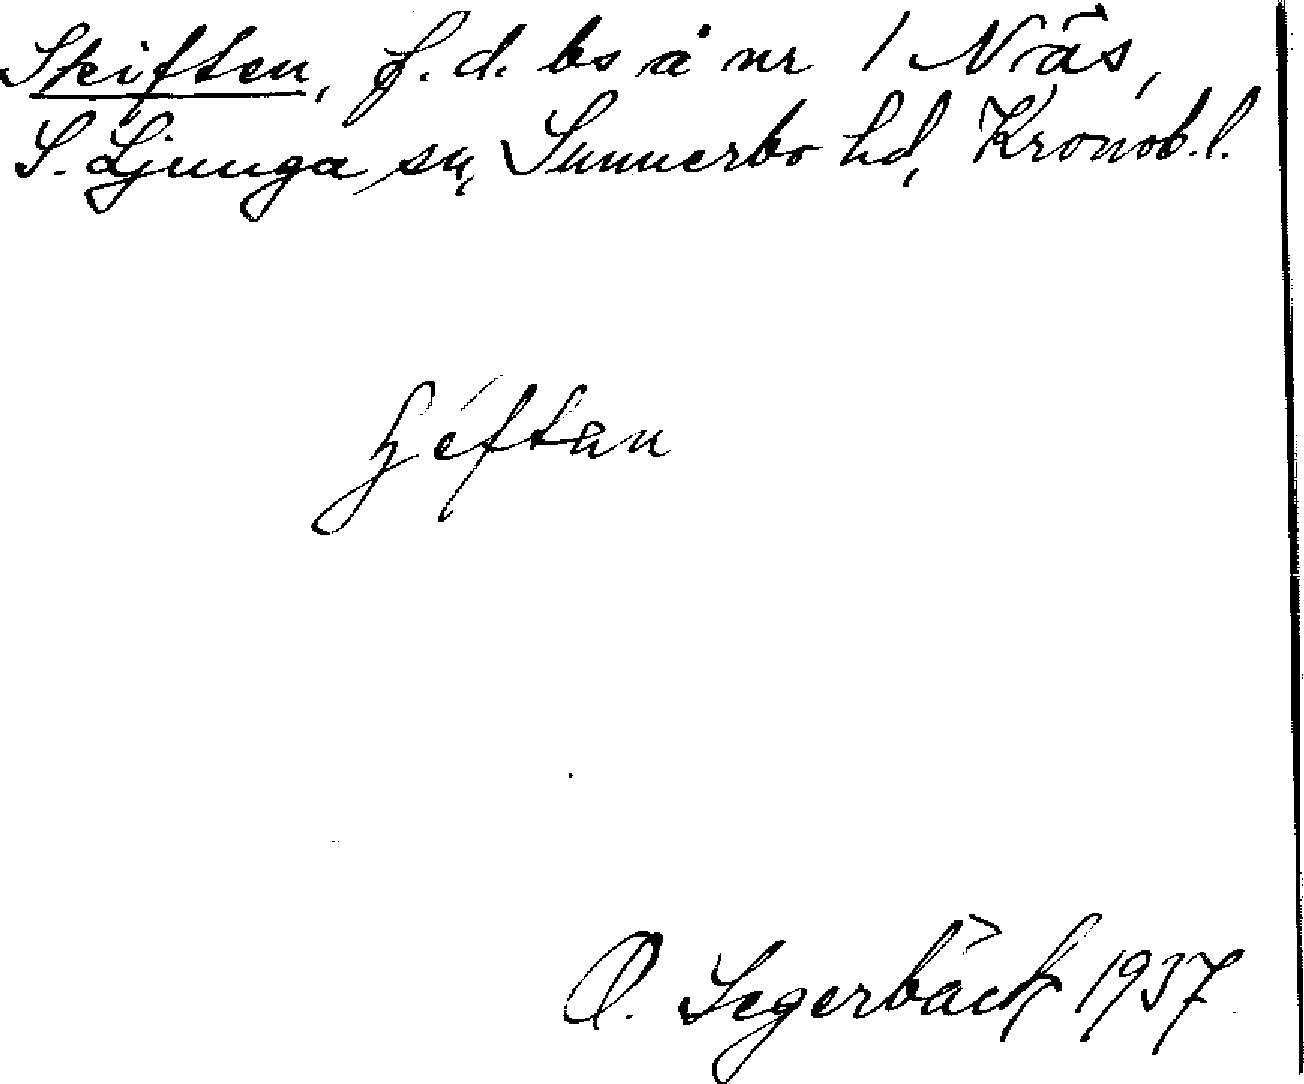 Skiften, f.d. bs å nr 1 Näs,
S. Ljunga sn, Sunnerbo hd, Kronob. l.
ɧéftan
O. Segerbäck 1937